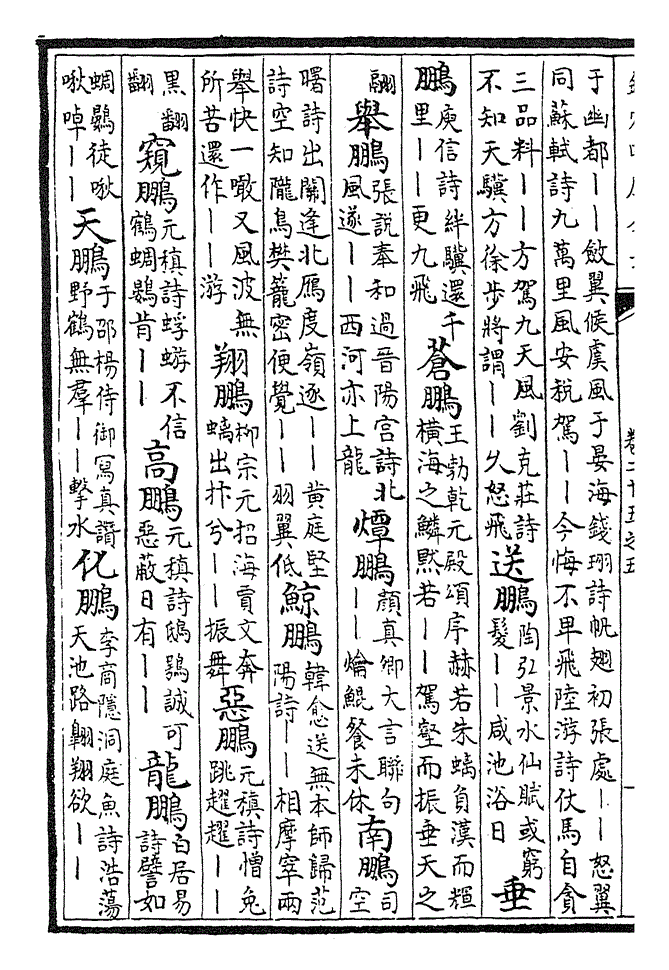 于幽都——斂翼候虞風于晏海錢珝詩帆翅初張處——怒翼
同蘇軾詩九萬里風安稅駕——今悔不早飛陸游詩伏馬自貪
三品料——方駕九天風劉克莊詩不知天驥方徐步將謂——久怒飛 送鵬 陶弘景水仙賦或窮髮——咸池浴日 垂
鵬 庾信詩絆驥還千里——更九飛 蒼鵬 王勃乾元殿頌序赫若朱螭負漢而糎橫海之鱗黙若——駕壑而振垂天之
翮 舉鵬 張説奉和過晉陽宫詩北風遂——西河亦上龍 燂鵬 顔真卿大言聯句——爚鯤餐未休 南鵬 司空
曙詩出關逢北鴈度嶺逐——黄庭堅詩空知隴鳥樊籠密便覺——羽翼低 鯨鵬 韓愈送無本師歸范陽詩——相摩窣兩
舉快一噉又風波無所苦還作——游 翔鵬 柳宗元招海賈文奔螭出抃兮——振舞 惡鵬 元稹詩憎兔跳趯趯——
黑翻翻 窺鵬 元稹詩蜉蝣不信鶴蜩鷃肯—— 高鵬 元稹詩鴟鴞誠可惡蔽日有—— 龍鵬 白居易詩譬如
蜩鷃徒啾啾啅—— 天鵬 于邵楊侍御寫真讚野鶴無羣——擊水 化鵬 李商隱洞庭魚詩浩蕩天池路翺翔欲——
卷二十五之五